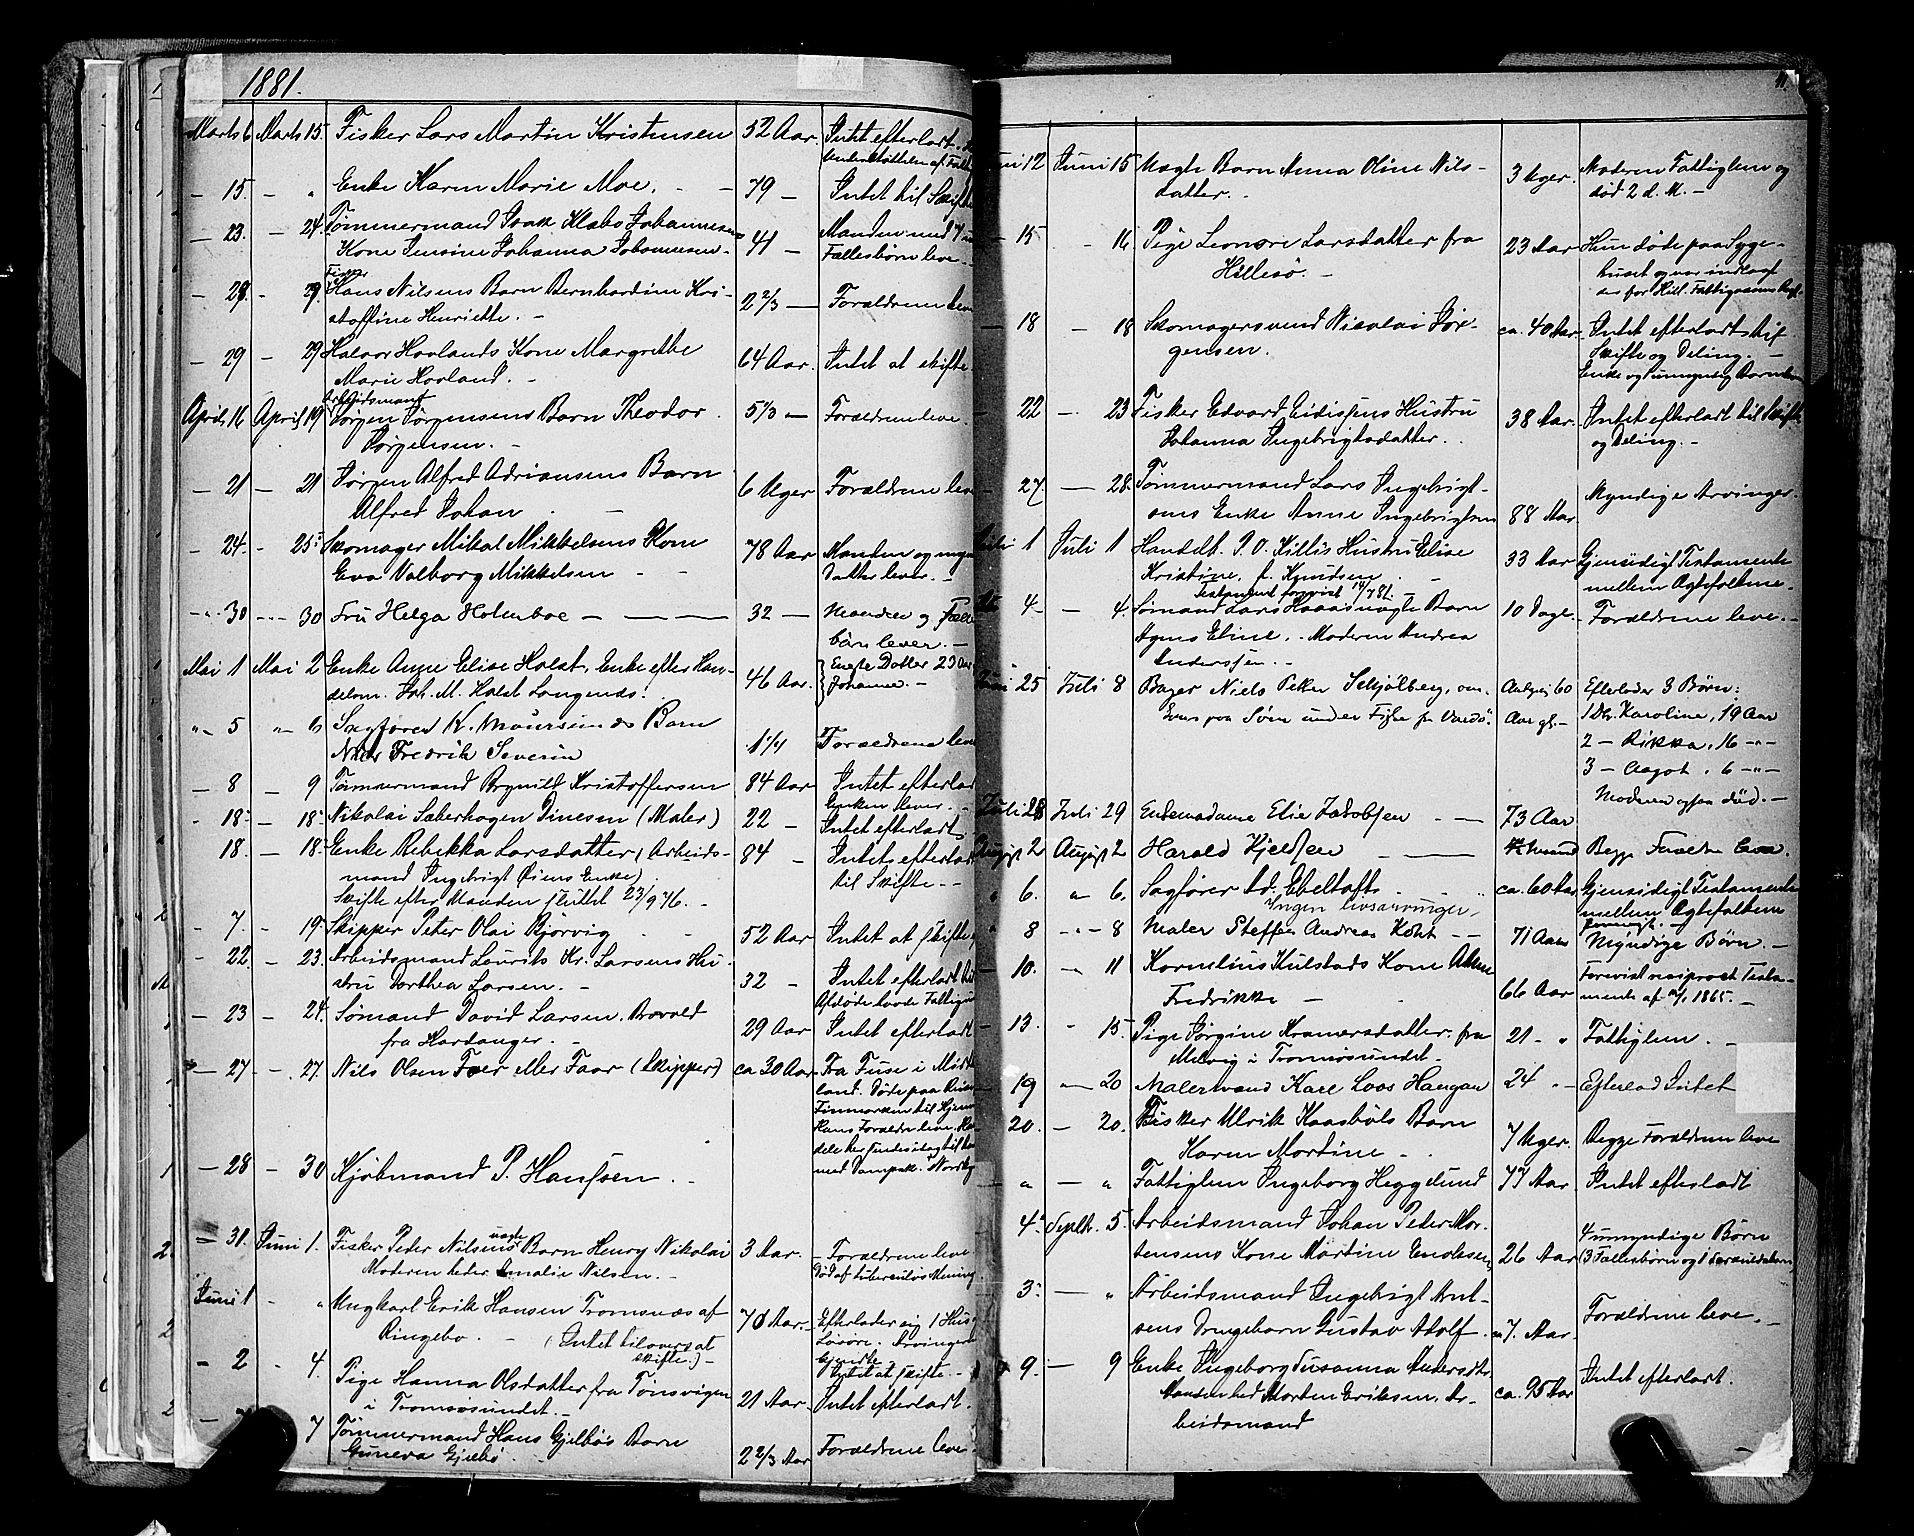 1881.
Marts 6 Marts 15. Fisker Lars Martin Kristensen 32 Aar. Intet efterladt.
Understøttelse af Fattig
— 15 - " Enke Karen Marie Moe. - - 79 — Intet til Skifte
— 23 — 24. Tømmermand Isak Klæbo Johannesens
Kone Jensine Johanna Johannesen - 41 — Manden med
Fællesbørn leve. -
Fisker
— 29 - 29. Hans Nilsens Barn Bernhardine Kri-
stoffine Henriette. - 2 2/3 — Forældrene leve
— 29 — 29 Halvor Hovlands Kone Margrethe
Marie Hovland. - 64 Aar. Intet at skifte
Arbeidsmand
April 16 April 19 Jørgen Jørgensens Barn Theodor
Jørgensen. - 5 1/3 — Forældrene leve.
— 21 — 21 Jørgen Alfred Adriansens Barn
Alfred Johan — 6 Uger Forældrene leve
— 24. - 25. Skomager Mikal Mikkelsens Kone
Eva Valborg Mikkelsen - - 78 Aar Manden og
Datter lever. -
— 30 — 30 Fru Helga Holmboe — — 32 — Manden og Fælles
børn lever. —
Mai 1 Mai 2 Enke Anne Elise Holst, Enke efter Han-
delsm. Joh. M. Holst 46 Aar. Eneste Datter 23 Aar
Johanne. -
" 5 " 6 Sagfører K. Maursunds Barn
Fredrik Severin 1 1/4 Forældrene leve
— 8 — 9 Tømmermand Brynild Kristoffersen 84 Aar Intet efterladt
Enken lever. -
- 18 - 18 Nikolai Sækerhagen Dinesen (Maler) 22 — Intet efterladt
18. — 18. Enke Rebekka Larsdatter (Arbeids-
mand Ingebrigt Enke) 84 — Intet efterladt
til Skifte. -
Skifte efter Manden sluttet 23/9 76. —
- 7 - 19. Skipper Peter Olai Bjørvig - - 52 Aar Intet at skifte
- 22 - 23. Arbeidsmand Laurits Kr. Larsens Hu-
stru Dorthea Larsen. - 32 - Intet efterladt
Afdøde havde Fattigun
- 23 - 24. Sømand David Larsen
fra Hardanger. - 29 Aar Intet efterladt
— 27 — 27. Nils Olsen Foer eller Faar (Skipper) ca 30 Aar Fra Fuse i
land. Døde paa Reise
Finmarken til Hjem
Hans Forældre leve.
med Dampsk.
— 28 — 30 Kjøbmand P. Hanssen. -
— 31. Juni 1. Fisker Peter Nilsens uægte Barn Henry Nikolai 3 Aar. Forældrene leve
Moderen heder Amalie Nilsen. — Død af tuberculøs Mening
Juni 1 - " Ungkarl Erik Hansen Tromsnæs af
Ringebo. - (Intet tilovers at
skifte.) - 70 Aar. Efterlader sig 1 Hus
Løsøre. Arvinger
Intet at skifte. -
- 2 - 4. Pige Hanna Olsdatter fra Tønsvigen
i Tromsøsundet. — 21 Aar. Intet efterladt.
7 Tømmermand Hans Gjelbøs Barn
Guneva Gjelbø. 2 2/3 Aar Forældrene leve
11.
Juni 12 Juni 15 Uægte Barn Anna Oline Nils-
datter. - 3 Uger. Moderen Fattiglem og
død 2 d. M. -
— 15 - 16 Pige Leonore Larsdatter fra
Hillesø. - 23 Aar Hun døde paa Syge-
huset og var indlagt
der for Hill. Fattigvæsens
— 18 — 18 Skomagersvend Nicolai Jør-
gensen. ca. 40 Aar. Intet efterladt
Skifte og Deling. —
Enke og umyndig Barn
22 - 23 Fisker Edvard Eidissens Hustru
Johanna Ingebrigtsdatter. - 38 Aar. Intet efterladt til Skifte
og Deling. -
27 — 28. Tømmermand Lars Ingebrigt-
sens Enke Anne Ingebrigtsen 88 Aar Myndige Arvinger.
Juli 1 Juli 1 Handelb. P. O. Killis Hustru Elise
Kristine, f. Knudsen 33 Aar Gjensidigt Testamente
mellem Ægtefolkene.
Testament forevist 14/7 81. -
4 - - 4. Sømand Lars uægte Barn
Agnes Eline. - Moderen Andrea
Anderssen. - 10 Dage Forældrene leve. -
Juni 25 Juli 8 Bager Niels Peter Schjølberg, om-
kom paa Søen under fra Vardø. 60
Aar gl. Efterlader 3 Børn:
1 Dtr. Karoline, 19 Aar
2 — Rikka, 16 -"-
3 — Aagot, 6 -"-
Moderen ogsaa død. -
Juli 28 Juli 29 Enkemadame Elie Jakobsen — 73 Aar
August 2 August 2 Harald Kjeldsen — Begge Forældre leve
" 6. " 6. Sagfører Ad. Ebeltoft. - ca. 60 Aar Gjensidigt Testamente
mellem Ægtefolkene
forevist. -
Ingen livsarvinger.
8 -"- 8 Maler Steffen Andreas Koht — 71 Aar Myndige Børn. -
- 10. - 11 Kornelius Kulstads Kone
Fredrikke — 66 Aar Forevist reciproct Testa-
mente af 1865. -
- 13. - 15. Pige Jørgine Kramersdatter fra
i Tromsøsundet. 21 - " Fattiglem. -
19 — 20 Malersvend Karl Loos Haugan 24 " - Efterlod Intet
20. — 20. Fisker Ulrik Kaasbøls Barn
Karen Martine - 7 Uger. Begge Forældrene leve
" — " Fattiglem Ingeborg Heggelund 77 Aar. Intet efterladt
4 Septb. 5. Arbeidsmand Johan Peder Mor-
tensens Kone Martine Enoksen 26 Aar 4 umyndige Børn
(3 Fællesbørn og 1
3. — " Arbeidsmand Ingebrigt Knut-
sens Drengebarn Gustav Adolf. 7. Aar Forældrene leve. -
9. — 9 Enke Ingeborg Susanna Andersdtr.
Manden hed Morten Eriksen, Ar-
beidsmand ca. 95 Aar Intet efterladt.